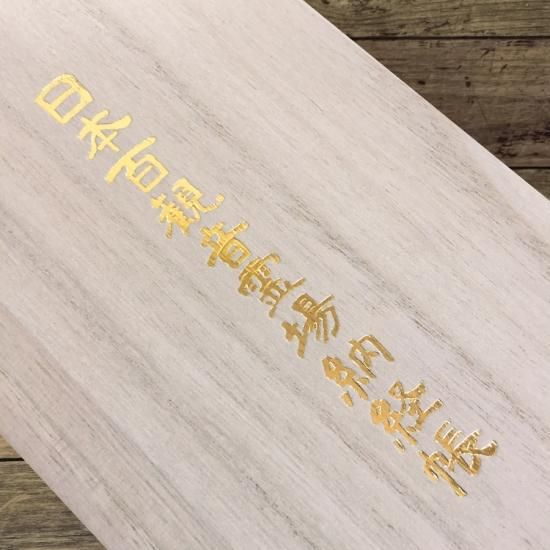 日本百観音霊場納経帳